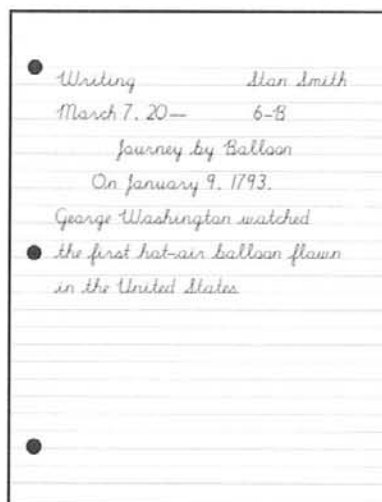 Writing Stan Smith
March 7, 20— 6-B
Journey by Balloon
On January 9, 1793,
George Washington watched
the first hot-air balloon flown
in the United States